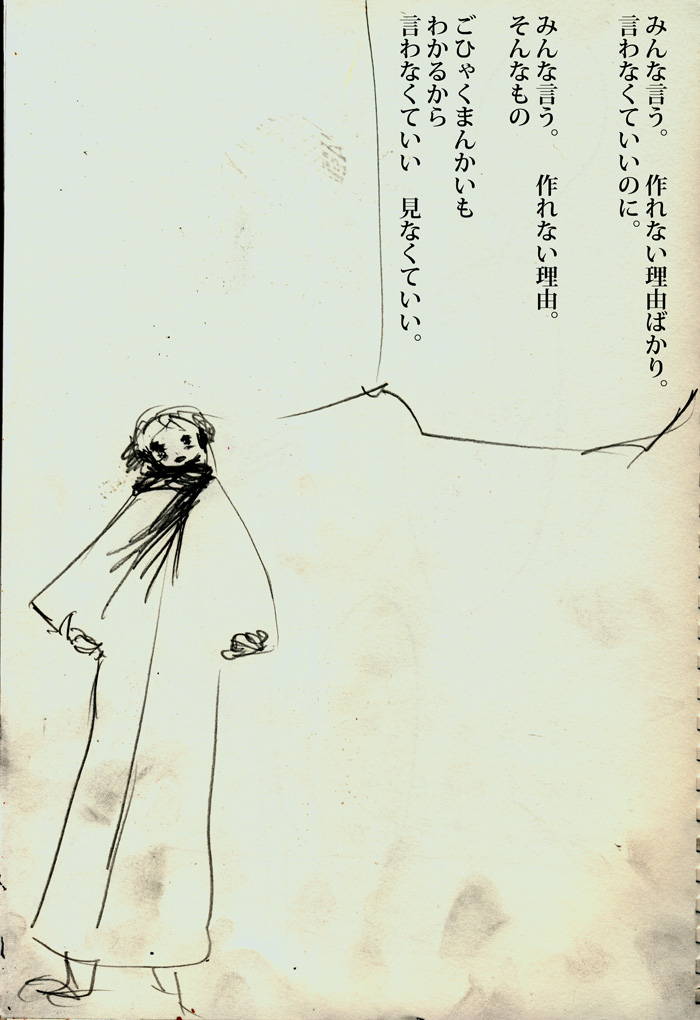 みんな言う。　作れない理由ばかり。
言わなくていいのに。
みんな言う。　作れない理由。
そんなもの
ごひゃくまんかいも
わかるから
言わなくていい　見なくていい。